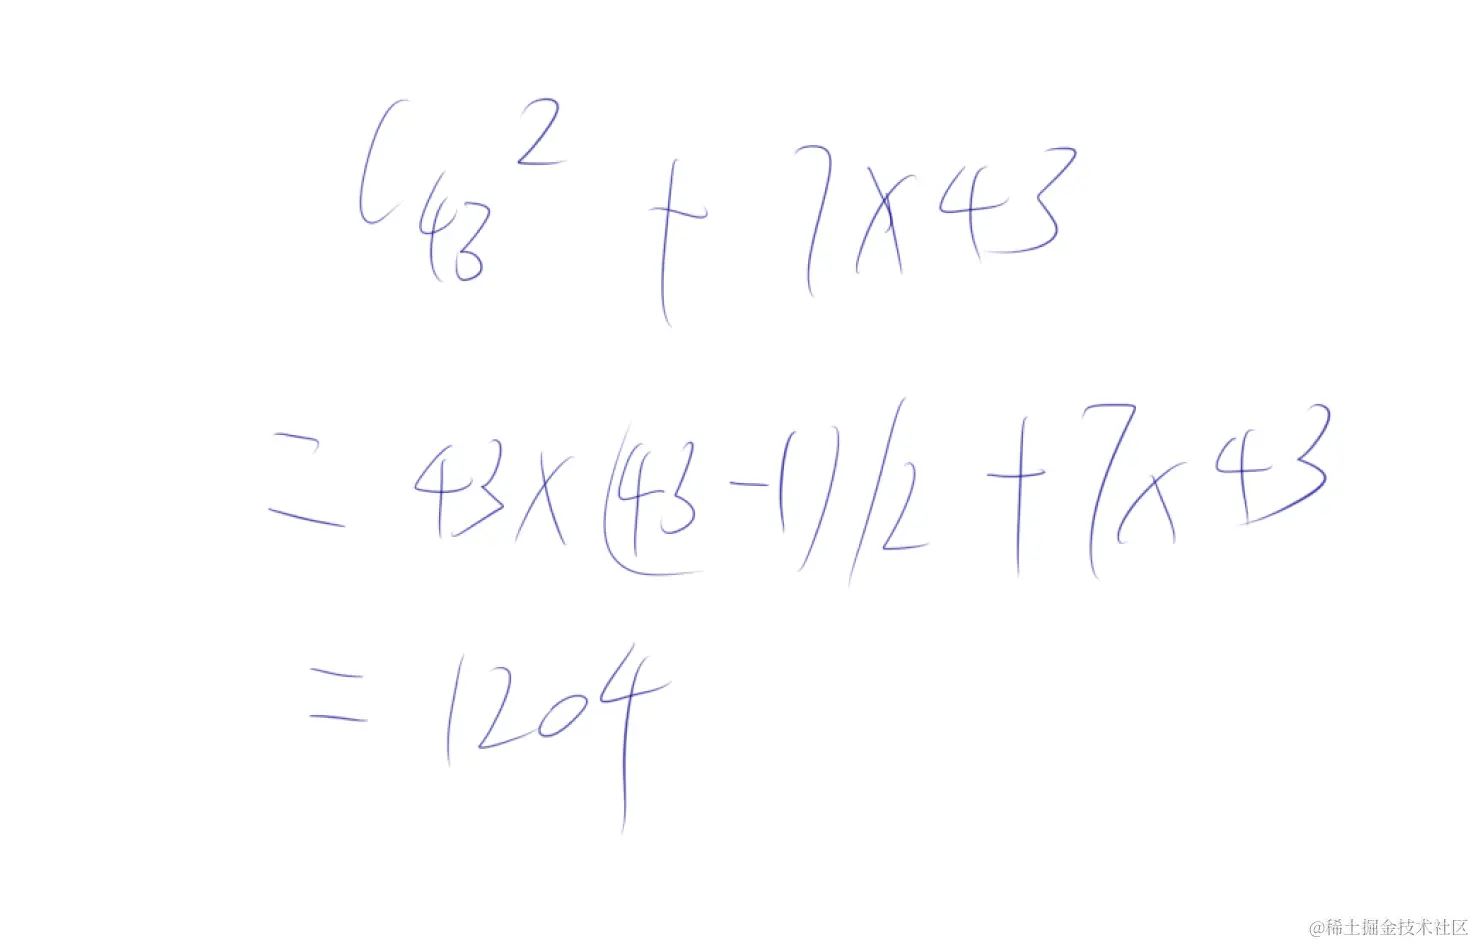 C₄₃² + 7×43
= 43×(43-1)/2 + 7×43
= 1204
@稀土掘金技术社区